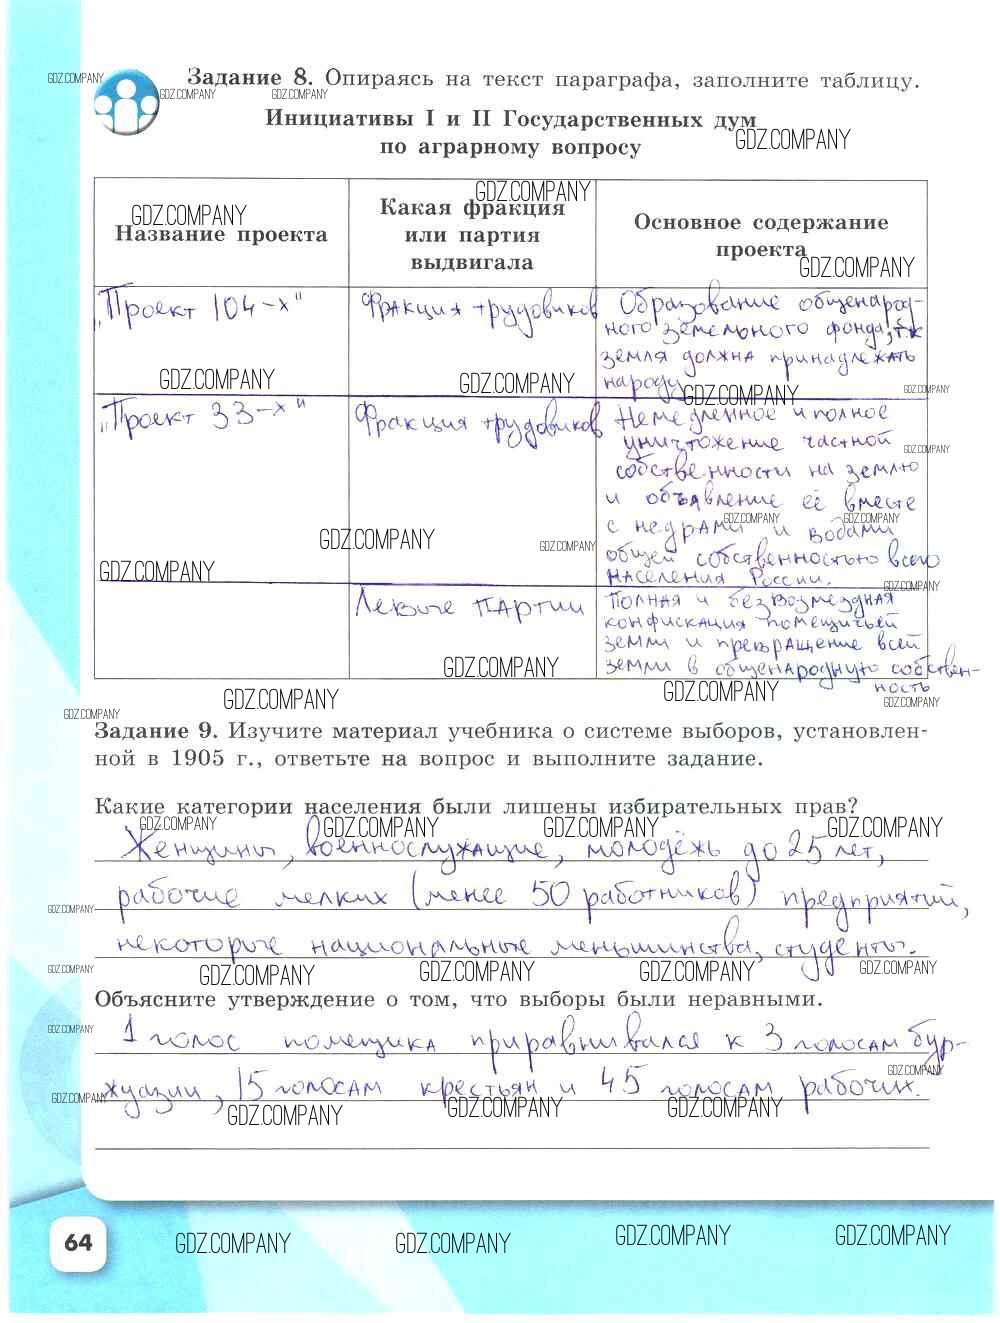 GDZ.COMPANY
Задание 8. Опираясь на текст параграфа, заполните таблицу.
GDZ.COMPANY GDZ.COMPANY
Инициативы I и II Государственных дум
GDZ.COMPANY
по аграрному вопросу
GDZ.COMPANY GDZ.COMPANY
Название проекта
Какая фракция
или партия
выдвигала
Основное содержание
проекта
GDZ.COMPANY
„Проект 104-х"
Фракция трудовиков
Образование общенарод-
ного земельного фонда, т.к
земля должна принадлежать
народу
GDZ.COMPANY GDZ.COMPANY GDZ.COMPANY GDZ.COMPANY
„Проект 33-х"
Фракция трудовиков
Немедленное и полное
уничтожение частной
GDZ.COMPANY
собственности на землю
и объявление её вместе
GDZ.COMPANY GDZ.COMPANY
с недрами и водами
GDZ.COMPANY GDZ.COMPANY
общей собственностью всего
населения России.
GDZ.COMPANY GDZ.COMPANY
Левые партии
Полная и безвозмездная
конфискация помещичьей
земли и превращение всей
земли в общенародную собствен-
ность
GDZ.COMPANY GDZ.COMPANY GDZ.COMPANY GDZ.COMPANY
GDZ.COMPANY
Задание 9. Изучите материал учебника о системе выборов, установлен-
ной в 1905 г., ответьте на вопрос и выполните задание.
Какие категории населения были лишены избирательных прав?
GDZ.COMPANY GDZ.COMPANY GDZ.COMPANY GDZ.COMPANY
Женщины, военнослужащие, молодёжь до 25 лет,
рабочие мелких (менее 50 работников) предприятий,
GDZ.COMPANY
некоторые национальные меньшинства, студенты.
GDZ.COMPANY GDZ.COMPANY GDZ.COMPANY GDZ.COMPANY GDZ.COMPANY
Объясните утверждение о том, что выборы были неравными.
GDZ.COMPANY
1 голос помещика приравнивался к 3 голосам бур-
GDZ.COMPANY
жуазии, 15 голосам крестьян и 45 голосам рабочих.
GDZ.COMPANY GDZ.COMPANY GDZ.COMPANY GDZ.COMPANY
64
GDZ.COMPANY GDZ.COMPANY GDZ.COMPANY GDZ.COMPANY